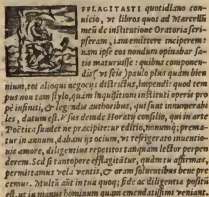 EFFLAGITASTI quotidiano con-
uicio, vt libros quos ad Marcellũ
meũ de institutione Oratoria scri-
pseram, iam emittere inciperem:
nam ipse eos nondum opinabar sa-
tis maturuisse: quibus componen-
dis, vt scis, paulo plus quàm bien-
nium, tot alioqui negocijs districtus, impendi: quod tem
pus non tam stylo, quàm inquisitioni instituti operis pro
pe infiniti, & legendis authoribus, qui sunt innumerabi
les, datum est. Vsus deinde Horatij consilio, qui in arte
Poëtica suadet ne præcipitetur editio, nonumq; prema-
tur in annum, dabam ijs ocium, vt refrigerato inuentio-
nis amore, diligentius repetitos tanquam lector perpen
derem. Sed si tantopere efflagitatur, quàm tu affirmas,
permittamus vela ventis, & oram soluentibus bene pre
cemur. Multũ aũt in tua quoq; fide ac diligentia positũ
est, ut in manus hominum quàm emendatissimi veniant.